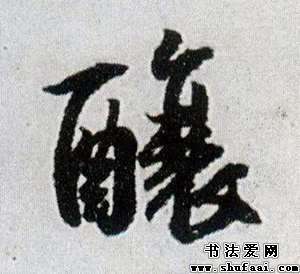 釀
书法爱网
www.shufaai.com